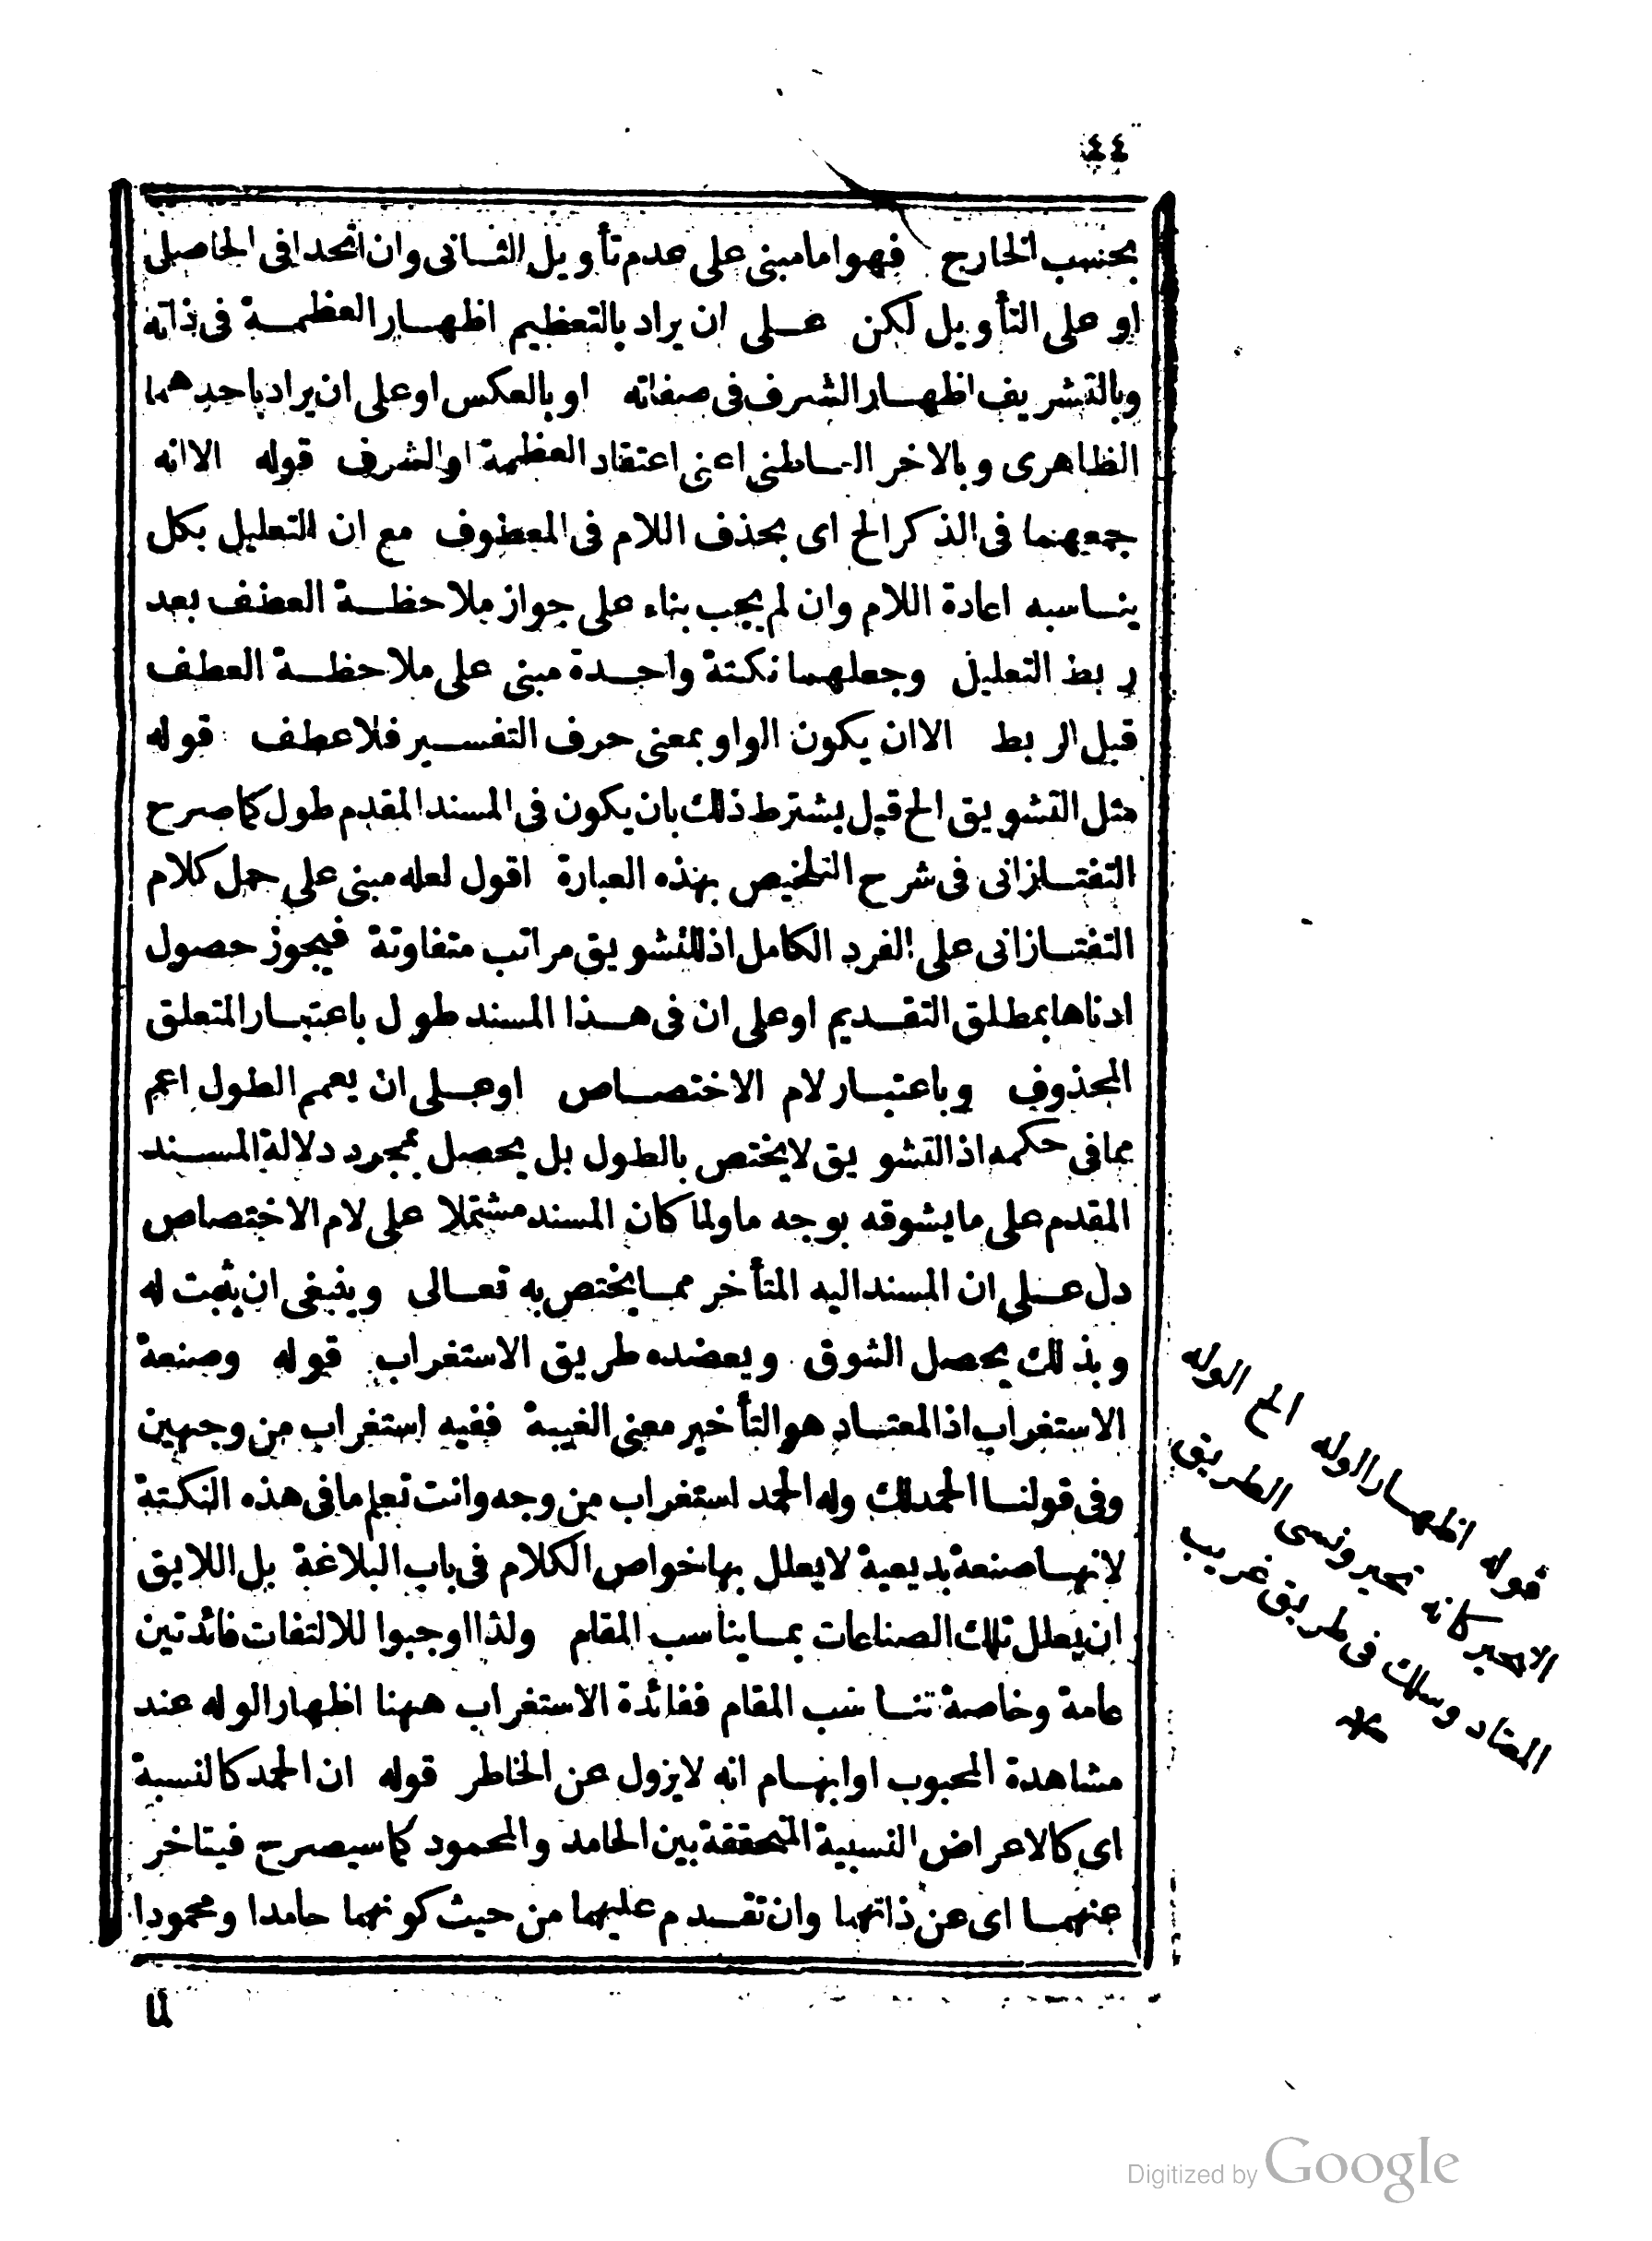 ٤٤
بحسب الخارج فهو اما مبنى على عدم تأويل الثانى وان اتحدا فى الحاصل
او على التأويل لكن على ان يراد بالتعظيم اظهار العظمة فى ذاته
وبالتشريف اظهار الشرف فى صفاته او بالعكس او على ان يراد باحدهما
الظاهرى وبالاخر الباطنى اعنى اعتقاد العظمة او الشرف قوله الا انه
جمعهما فى الذكر الخ اى بحذف اللام فى المعطوف مع ان التعليل بكل
يناسبه اعادة اللام وان لم يجب بناء على جواز ملاحظة العطف بعد
ربط التعليل وجعلهما نكتة واحدة مبنى على ملاحظة العطف
قبل الربط الا ان يكون الواو بمعنى حرف التفسير فلا عطف قوله
مثل التشويق الخ قيل يشترط ذلك بان يكون فى المسند المقدم طول كما صرح
التفتازانى فى شرح التلخيص بهذه العبارة اقول لعله مبنى على حمل كلام
التفتازانى على الفرد الكامل اذ للتشويق مراتب متفاوتة فيجوز حصول
ادناها بمطلق التقديم او على ان فى هذا المسند طول باعتبار المتعلق
المحذوف وباعتبار لام الاختصاص او على ان يعمم الطول اعم
مما فى حكمه اذ التشويق لا يختص بالطول بل يحصل بمجرد دلالة المسند
المقدم على ما يشوقه بوجه ما ولما كان المسند مشتملا على لام الاختصاص
دل على ان المسند اليه المتأخر مما يختص به تعالى وينبغى ان يثبت له
وبذلك يحصل الشوق ويعضده طريق الاستغراب قوله وصنعة
الاستغراب اذ المعتاد هو التأخير معنى الغيبة ففيه استغراب من وجهين
وفى قولنا الحمدلك وله الحمد استغراب من وجه وانت تعلم ما فى هذه النكتة
لانها صنعة بديعية لا يعلل بها خواص الكلام فى باب البلاغة بل اللايق
ان يعلل تلك الصناعات بما يناسب المقام ولذا اوجبوا للالتفات فائدتين
عامة وخاصة تناسب المقام ففائدة الاستغراب ههنا اظهار الوله عند
مشاهدة المحبوب او ايهام انه لا يزول عن الخاطر قوله ان الحمد كالنسبة
اى كالاعراض النسبية المتحققة بين الحامد والمحمود كما سيصرح فيتاخر
عنهما اى عن ذاتهما وان تقدم عليهما من حيث كونهما حامدا ومحمودا
لما
قوله اظهار الوله الخ الوله
كانه تحير ونسى الطريق
المعتاد وسلك فى طريق غريب
*
Digitized by Google